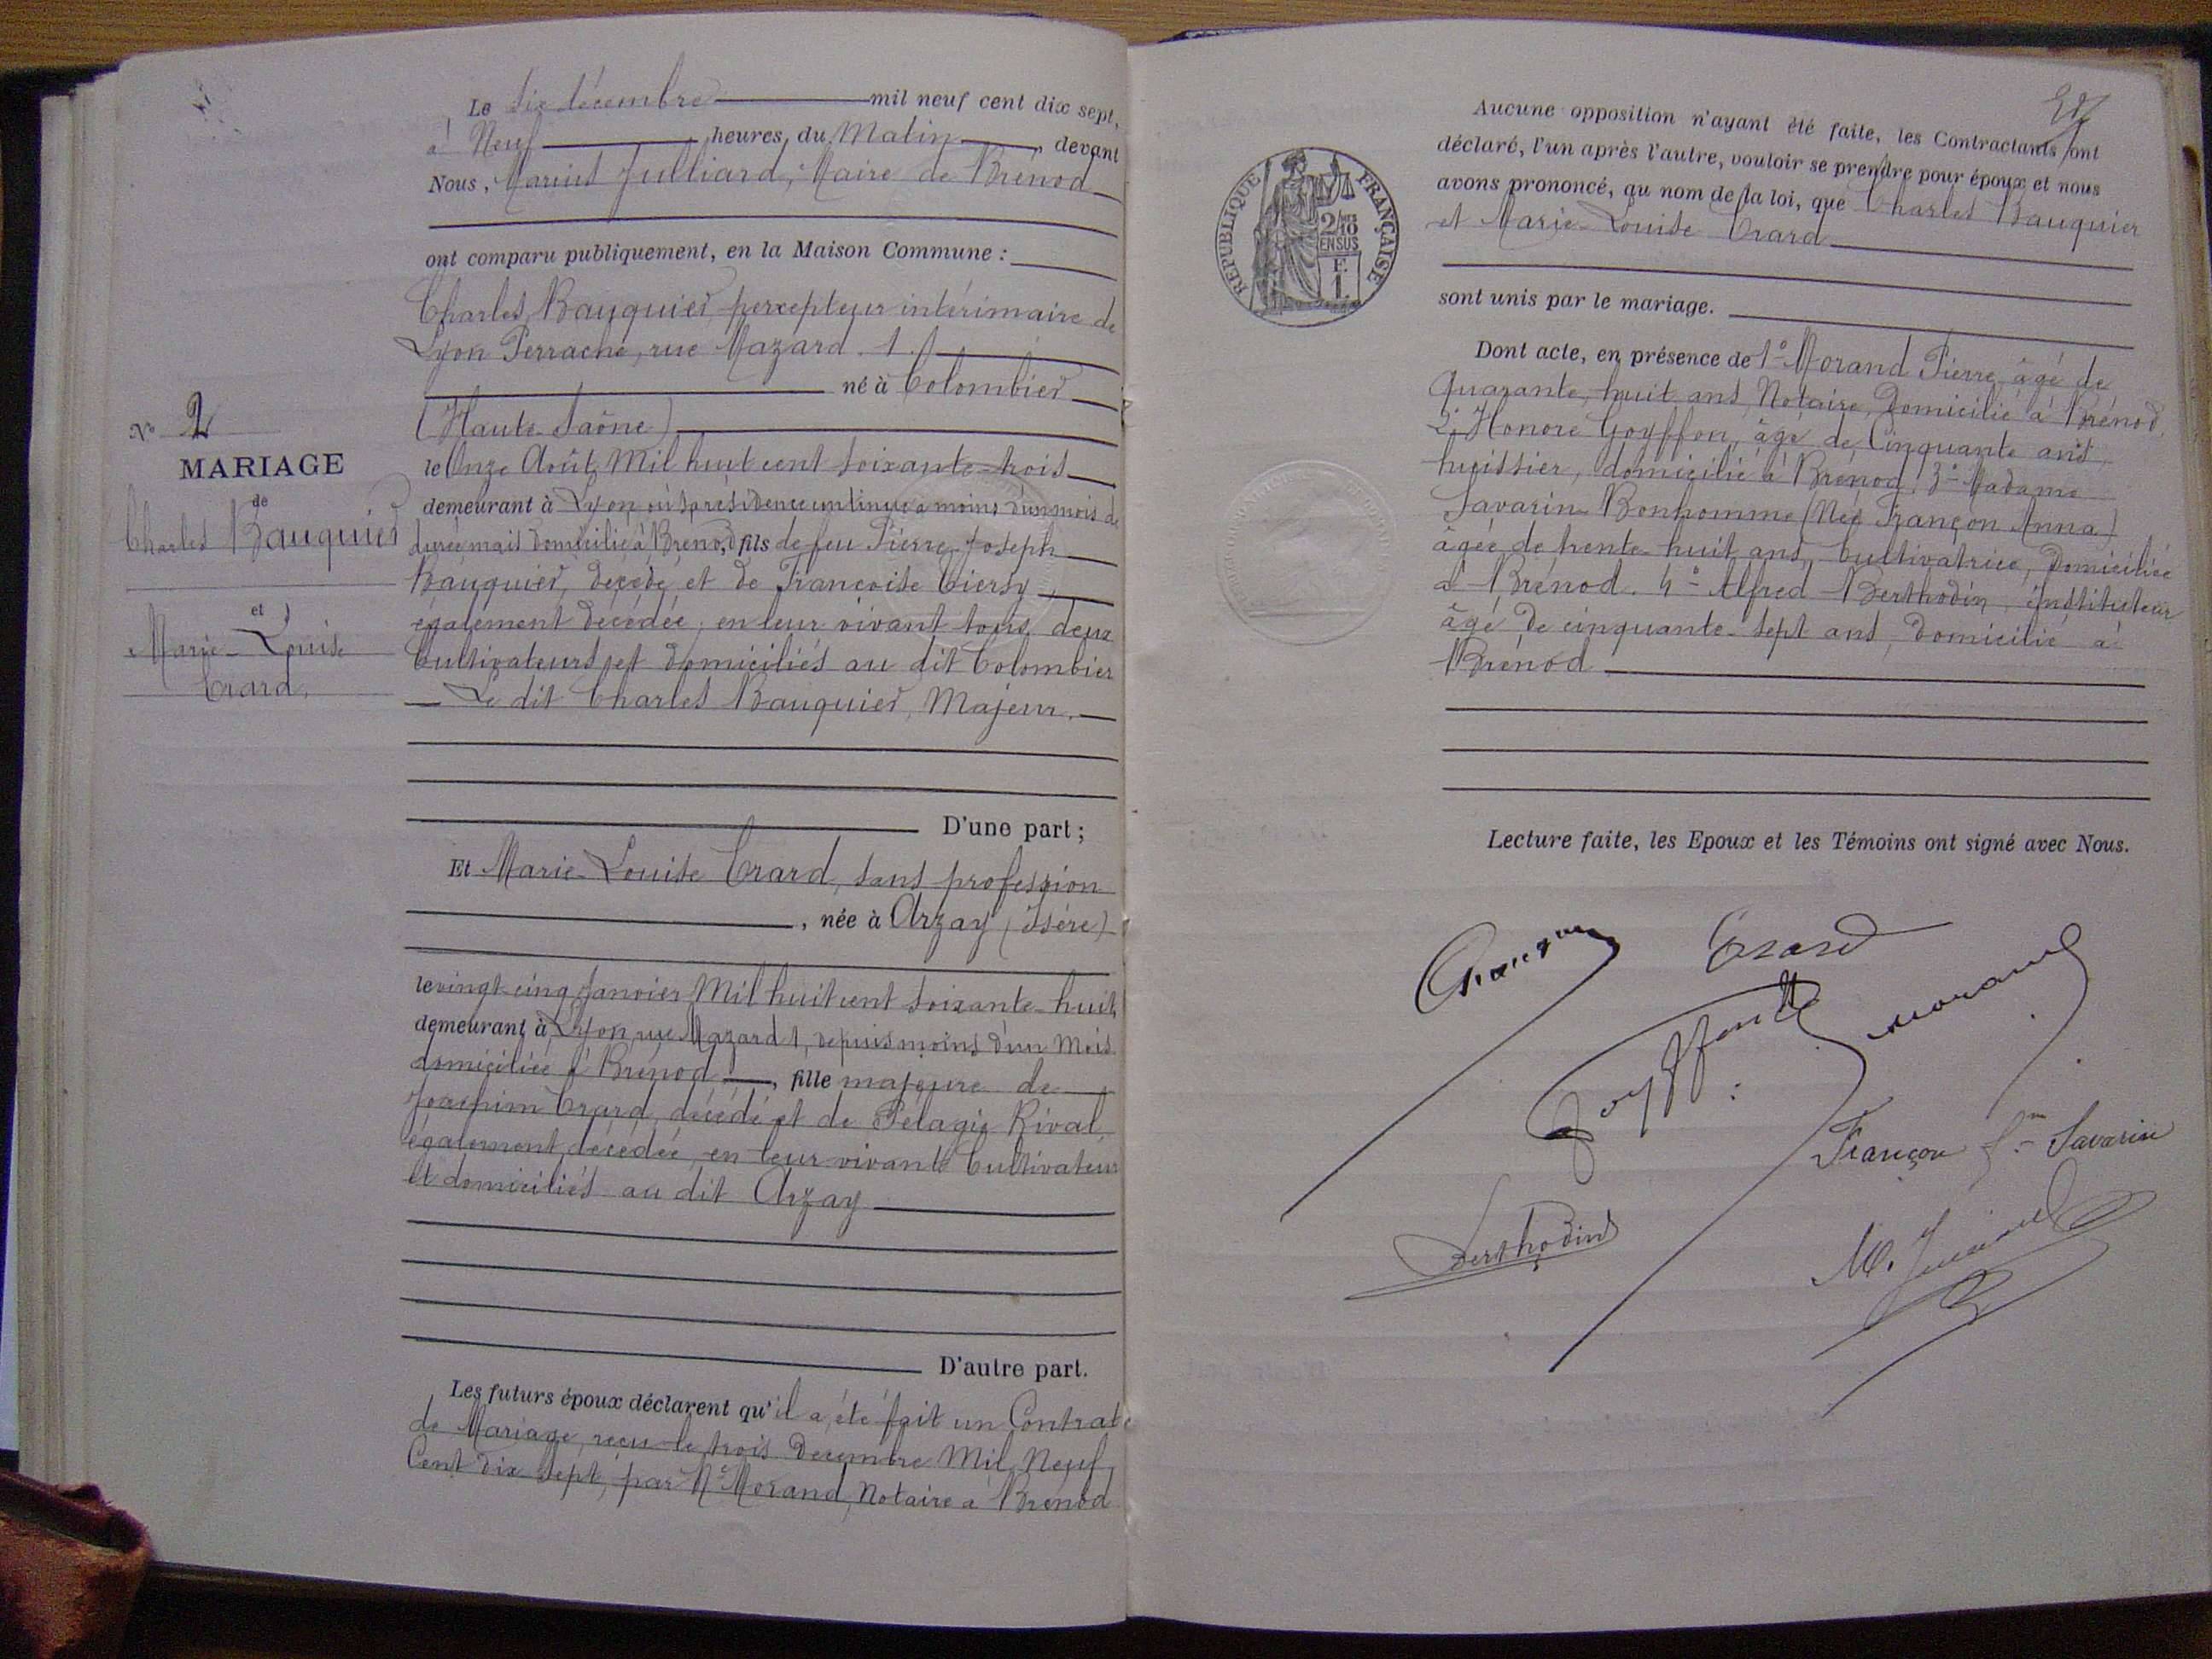 Le six décembre mil neuf cent dix sept,
à Neuf heures, du Matin, devant
Nous, Marius Julliard, Maire de Brénod
ont comparu publiquement, en la Maison Commune :
Charles Bauquier percepteur intérimaire de
Lyon Perrache, rue Mazard. 1.
né à Colombier
(Haute-Saône)
le Onze Août Mil huit cent soixante-trois
demeurant à Lyon où sa résidence continue a moins d'un mois de
durée mais domicilié à Brénod, fils de feu Pierre-Joseph
Bauquier, décédé et de Françoise Ciersy
également décédée, en leur vivant tous deux
Cultivateurs et domiciliés au dit Colombier
Le dit Charles Bauquier, Majeur.
D'une part ;
N° 2
MARIAGE
de
Charles Bauquier
et
Marie-Louise
Crard,
Et Marie-Louise Crard, sans profession
, née à Arzay (Isère)
le vingt-cinq Janvier Mil huit cent soixante-huit
demeurant à Lyon, rue Mazard 1, depuis moins d'un mois
domiciliée à Brénod, fille majeure de
Joachim Crard, décédé et de Pélagie Rival,
également décédée, en leur vivant Cultivateurs
et domiciliés au dit Arzay
D'autre part.
Les futurs époux déclarent qu'il a été fait un Contrat
de Mariage, reçu le trois Decembre Mil Neuf
Cent dix sept, par Me Morand, Notaire à Brénod
Aucune opposition n'ayant été faite, les Contractants ont
déclaré, l'un après l'autre, vouloir se prendre pour époux et nous
avons prononcé, au nom de la loi, que Charles Bauquier
et Marie-Louise Crard
sont unis par le mariage.
RÉPUBLIQUE FRANÇAISE
2/10
EN SUS
E
1
Dont acte, en présence de 1° Morand Pierre, âgé de
Quarante-huit ans, Notaire, Domicilié à Brénod,
2° Honoré Goyffon, âgé de Cinquante ans,
huissier, domicilié à Brénod, 3° Madame
Savarin-Bonhomme (Née Françon Anna)
âgée de trente-huit ans, Cultivatrice, Domiciliée
à Brénod. 4° Alfred Berthodin, instituteur
âgé de cinquante-sept ans, Domicilié à
Brénod
Lecture faite, les Epoux et les Témoins ont signé avec Nous.
Crard
Goyffon
Morand
Françon Savarin
Berthodin
M. Julliard